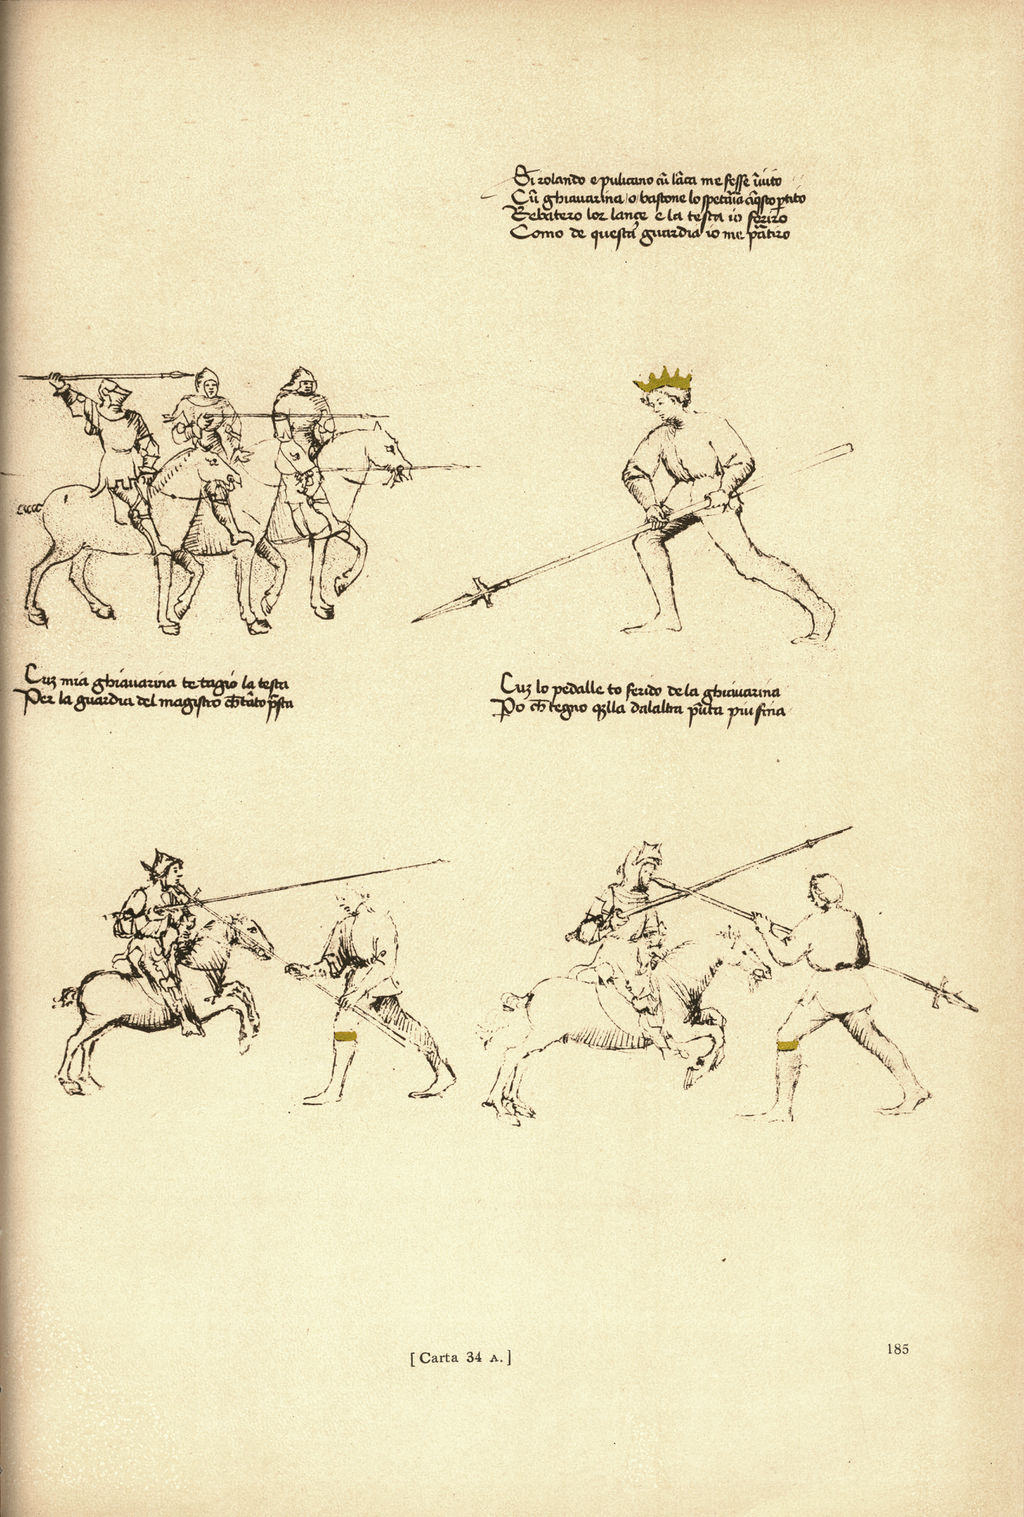 Si rolando e pulicano cũ lãza me fesse ĩuito
Cũ ghiauarina o bastone lo spetaria cũ q̃sto ꝑtito
Rebatero lor lançe e la testa io feriro
Como de questa guardia io me pãtiro
Cuz mia ghiauarina te tagio la testa
Per la guardia del magistro ch̃ tãto p̃sta
Cuz lo pedalle to ferido de la ghiauarina
Po ch̃ tegno q̃lla dalaltra pũta piu fina
[Carta 34 A.]
185